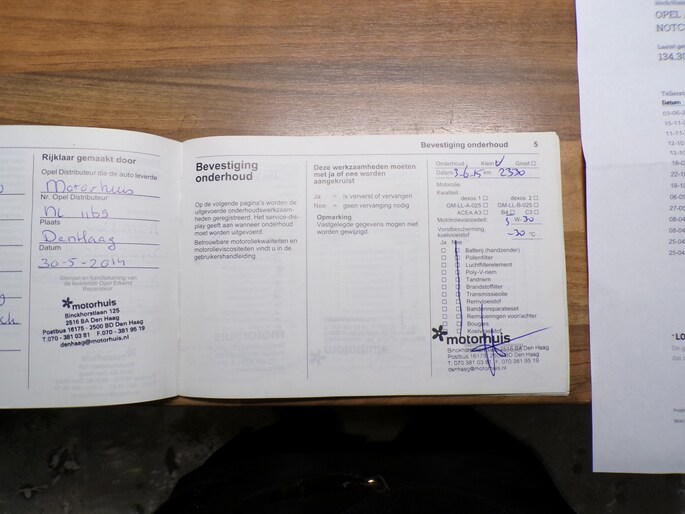 Rijklaar gemaakt door
Opel Distributeur die de auto leverde
Motorhuis
Nr. Opel Distributeur
NL 1165
Plaats
Den Haag
Datum
30-5-2014
Stempel en handtekening van
de leverende Opel Erkend
Reparateur
motorhuis
Binckhorstlaan 125
2516 BA Den Haag
Postbus 16175 - 2500 BD Den Haag
T.070 - 381 03 81 F.070 - 381 95 19
denhaag@motorhuis.nl
Bevestiging
onderhoud
Op de volgende pagina's worden de
uitgevoerde onderhoudswerkzaam-
heden geregistreerd. Het service-dis-
play geeft aan wanneer onderhoud
moet worden uitgevoerd.
Betrouwbare motoroliekwaliteiten en
motorolieviscositeiten vindt u in de
gebruikershandleiding.
Deze werkzaamheden moeten
met ja of nee worden
aangekruist
Ja = is ververst of vervangen
Nee = geen vervanging nodig
Opmerking
Vastgelegde gegevens mogen niet
worden gewijzigd.
Bevestiging onderhoud 5
Onderhoud: Klein Groot
Datum 3-6-15 km
Motorolie
Kwaliteit:
dexos 1 dexos 2
GM-LL-A-025 GM-LL-B-025
ACEA A3 B4 C3
Motorolieviscositeit: W-30
Vorstbescherming,
koelvloeistof -30 °C
Ja Nee
Batterij (handzender)
Pollenfilter
Luchtfilterelement
Poly-V-riem
Tandriem
Brandstoffilter
Transmissieolie
Remvloeistof
Bandenreparatieset
Remvoeringen voor/achter
Bougies
Koelvloeistof
motorhuis
Binckhorstlaan 125 2516 BA Den Haag
Postbus 16175 2500 BD Den Haag
T. 070 381 03 81 F. 070 381 95 19
denhaag@motorhuis.nl
OPEL
NOTC
Datum